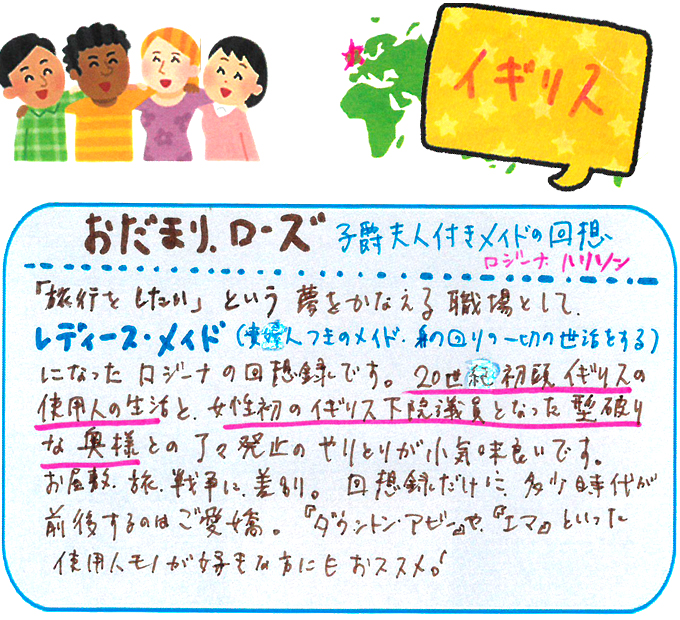 イギリス
おだまり、ローズ 子爵夫人付きメイドの回想
ロジーナ ハリソン
「旅行をしたい」という夢をかなえる職場として、
レディース・メイド(貴婦人つきのメイド・身の回りの一切の世話をする)
になったロジーナの回想録です。20世紀初頭イギリスの
使用人の生活と、女性初のイギリス下院議員となった型破り
な奥様との丁々発止のやりとりが小気味良いです。
お屋敷、旅、戦争に、差別。回想録だけに、多少時代が
前後するのはご愛嬌。『ダウントン・アビー』や、『エマ』といった
使用人モノが好きな方にもおススメ!